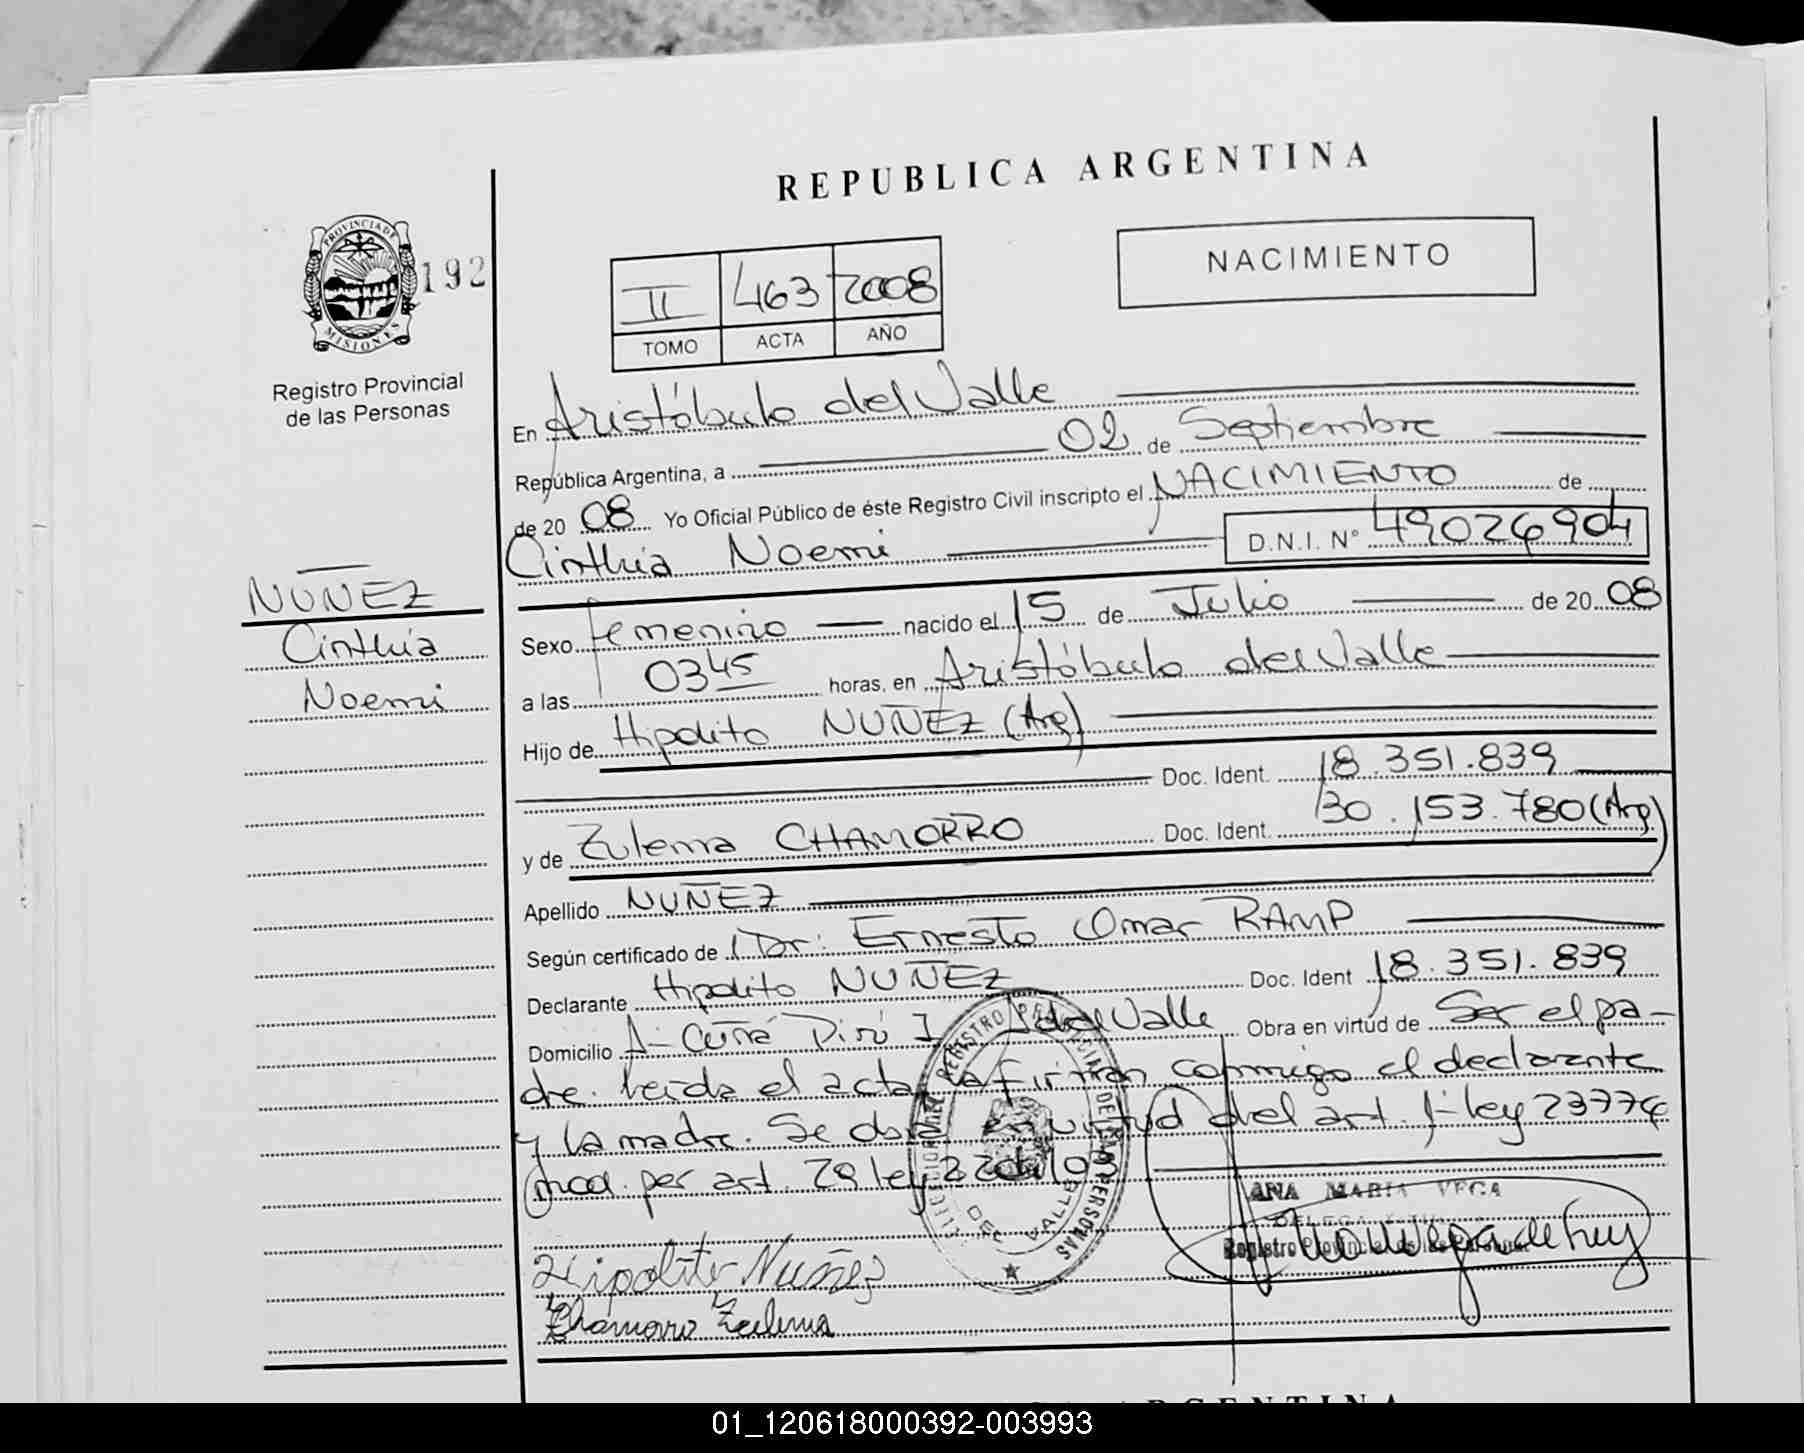 REPUBLICA ARGENTINA
PROVINCIA DE
MISIONES
192
Registro Provincial
de las Personas
II 463 2008
TOMO ACTA AÑO
NACIMIENTO
En Aristóbulo del Valle
República Argentina, a 02 de Septiembre
de 20 08 Yo Oficial Público de éste Registro Civil inscripto el NACIMIENTO de
Cinthia Noemi D.N.I. N° 49026904
NUÑEZ
Cinthia
Noemi
Sexo femenino nacido el 15 de Julio de 20 08
a las 0345 horas, en Aristóbulo del Valle
Hijo de Hipolito NUÑEZ (Arg)
Doc. Ident. 18.351.839
y de Zulema CHAMORRO Doc. Ident. 30.153.780 (Arg)
Apellido NUÑEZ
Según certificado de Dr: Ernesto Omar RAMP
Declarante Hipolito NUÑEZ Doc. Ident 18.351.839
Domicilio A- Cuña Pirú I del Valle Obra en virtud de Ser el pa-
dre. leida el acta la firman conmigo el declarante
y la madre. Se obra en virtud del art. 1- ley 23776
mod. por art. 29 ley
REGISTRO DE LAS PERSONAS
DEL VALLE
ANA MARIA VEGA
DELEGA
Registro Provincial de las Personas
Hipolito Nuñez
Chamorro Zulema
ARGENTINA
01_120618000392-003993